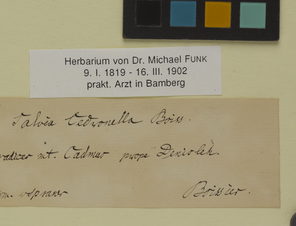 Herbarium von Dr. Michael FUNK
9. I. 1819 - 16. III. 1902
prakt. Arzt in Bamberg
Salvia Cedronella Boiss.
radices mt. Cadmus prope
Boissier.